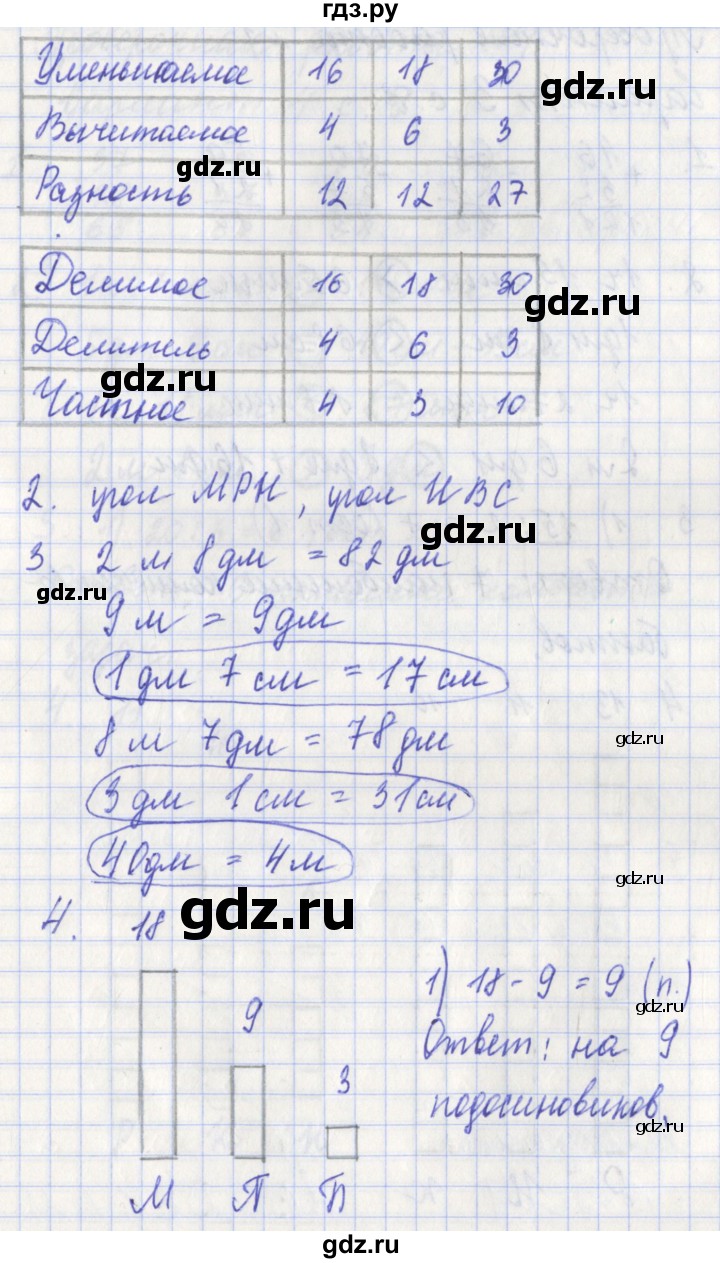 гдз.ру
Уменьшаемое 16 18 30
gdz.ru
Вычитаемое 4 6 3
gdz.ru
Разность 12 12 27
Делимое 16 18 30
gdz.ru
Делитель 4 6 3
gdz.ru
Частное 4 3 10
2. угол МРН, угол НВС
3. 2 м 8 дм = 82 дм
gdz.ru
9 м = 9 дм
1 дм 7 см = 17 см
8 м 7 дм = 78 дм
gdz.ru
3 дм 1 см = 31 см
40 дм = 4 м
gdz.ru
4. 18
gdz.ru
1) 18 - 9 = 9 (п.)
gdz.ru
9
Ответ: на 9
3
подосиновиков.
gdz.ru
М П Б
gdz.ru